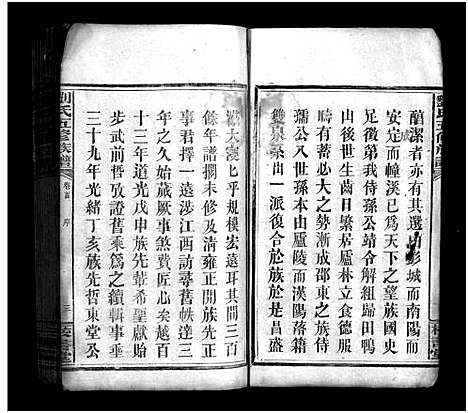 劉氏五修族譜
醇潔者亦有其選由彭城而南陽而
安定而幛溪已為天下之望族國史
足徵我侍孫公靖令解組歸田鴨
山後世生齒日繁居廬林立食德服
疇者蓄必大之勢漸成邵東之族侍
孺公入世孫本由廬陵而漢陽落籍
雙泉系出一派復合於族於是昌盛
龐大寖乎規模宏遠耳其間三百
餘年譜擱未修及清雍正開族先正
事君擇一遠涉江西訪尋舊帙達三
年之久始蕆厥事茲後先輩接踵
十三年道光戊申族先輩希聖獻貽
步武前哲攷證舊乘為之續輯事垂
三十九年光緒丁亥族先哲東堂公
劉氏五修族譜
卷首 序
三